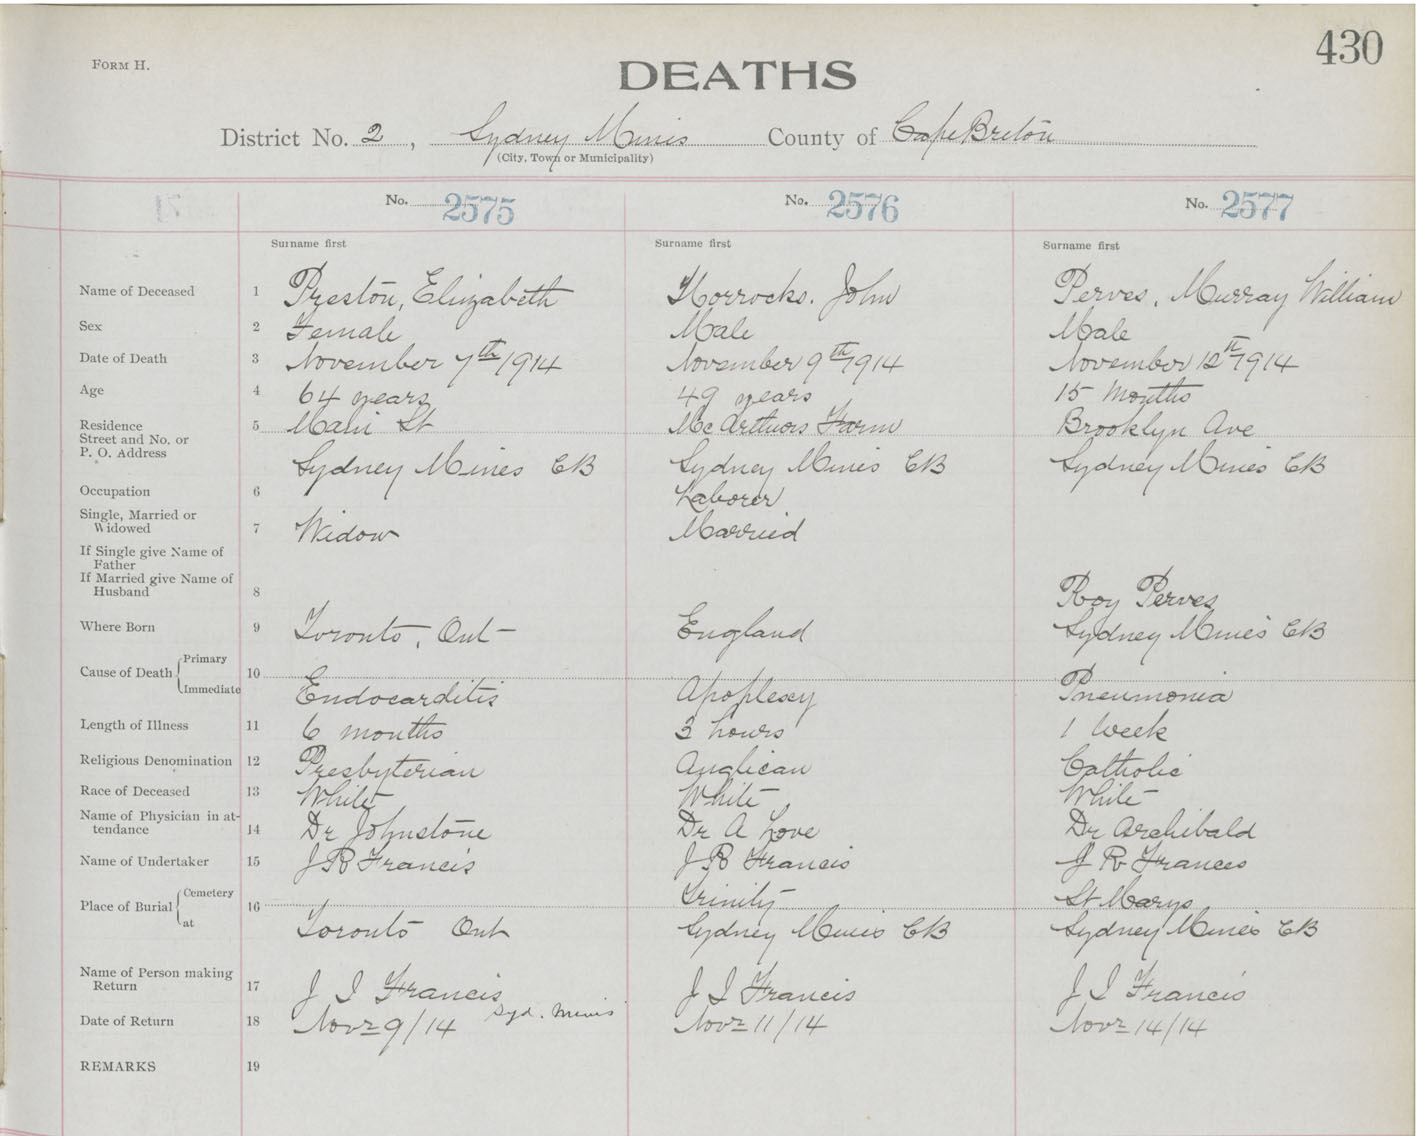 430
FORM H.
DEATHS
District No. 2, Sydney Mines County of Cape Breton
(City, Town or Municipality)
No. 2575 No. 2576 No. 2577
Surname first Surname first Surname first
Name of Deceased 1 Preston, Elizabeth Horrocks. John Perves, Murray William
Sex 2 Female Male Male
Date of Death 3 November 7th 1914 November 9th 1914 November 12th 1914
Age 4 64 years 49 years 15 Months
Residence 5 Main St McArthurs Farm Brooklyn Ave
Street and No. or
P. O. Address Sydney Mines CB Sydney Mines CB Sydney Mines CB
Occupation 6 Laborer
Single, Married or
Widowed 7 Widow Married
If Single give Name of
Father
If Married give Name of
Husband 8 Roy Perves
Where Born 9 Toronto, Ont England Sydney Mines CB
Primary
Cause of Death 10
Immediate Endocarditis Apoplexy Pneumonia
Length of Illness 11 6 months 3 hours 1 week
Religious Denomination 12 Presbyterian Anglican Catholic
Race of Deceased 13 White White White
Name of Physician in at-
tendance 14 Dr Johnstone Dr A Love Dr Archibald
Name of Undertaker 15 J R Francis J R Francis J R Francis
Cemetery Trinity St Marys
Place of Burial 16
at Toronto Ont Sydney Mines CB Sydney Mines CB
Name of Person making
Return 17 J I Francis J I Francis J I Francis
Syd. Mines
Date of Return 18 Novr 9/14 Novr 11/14 Novr 14/14
REMARKS 19